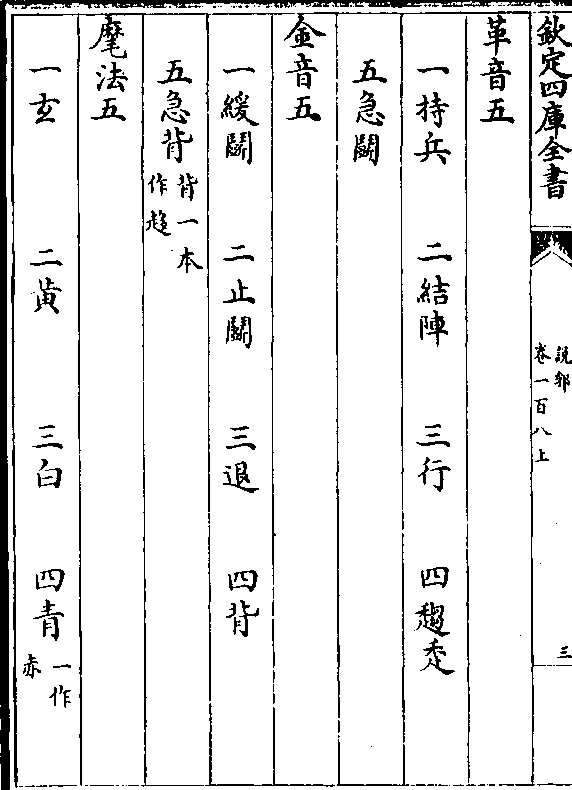 欽定四庫全書
說郛
卷一百八上
三
革音五
一持兵 二結陣 三行 四趨走
五急鬭
金音五
一緩鬭 二止鬭 三退 四背
五急背 背一本作趍
麾法五
一玄 二黄 三白 四青 一作赤